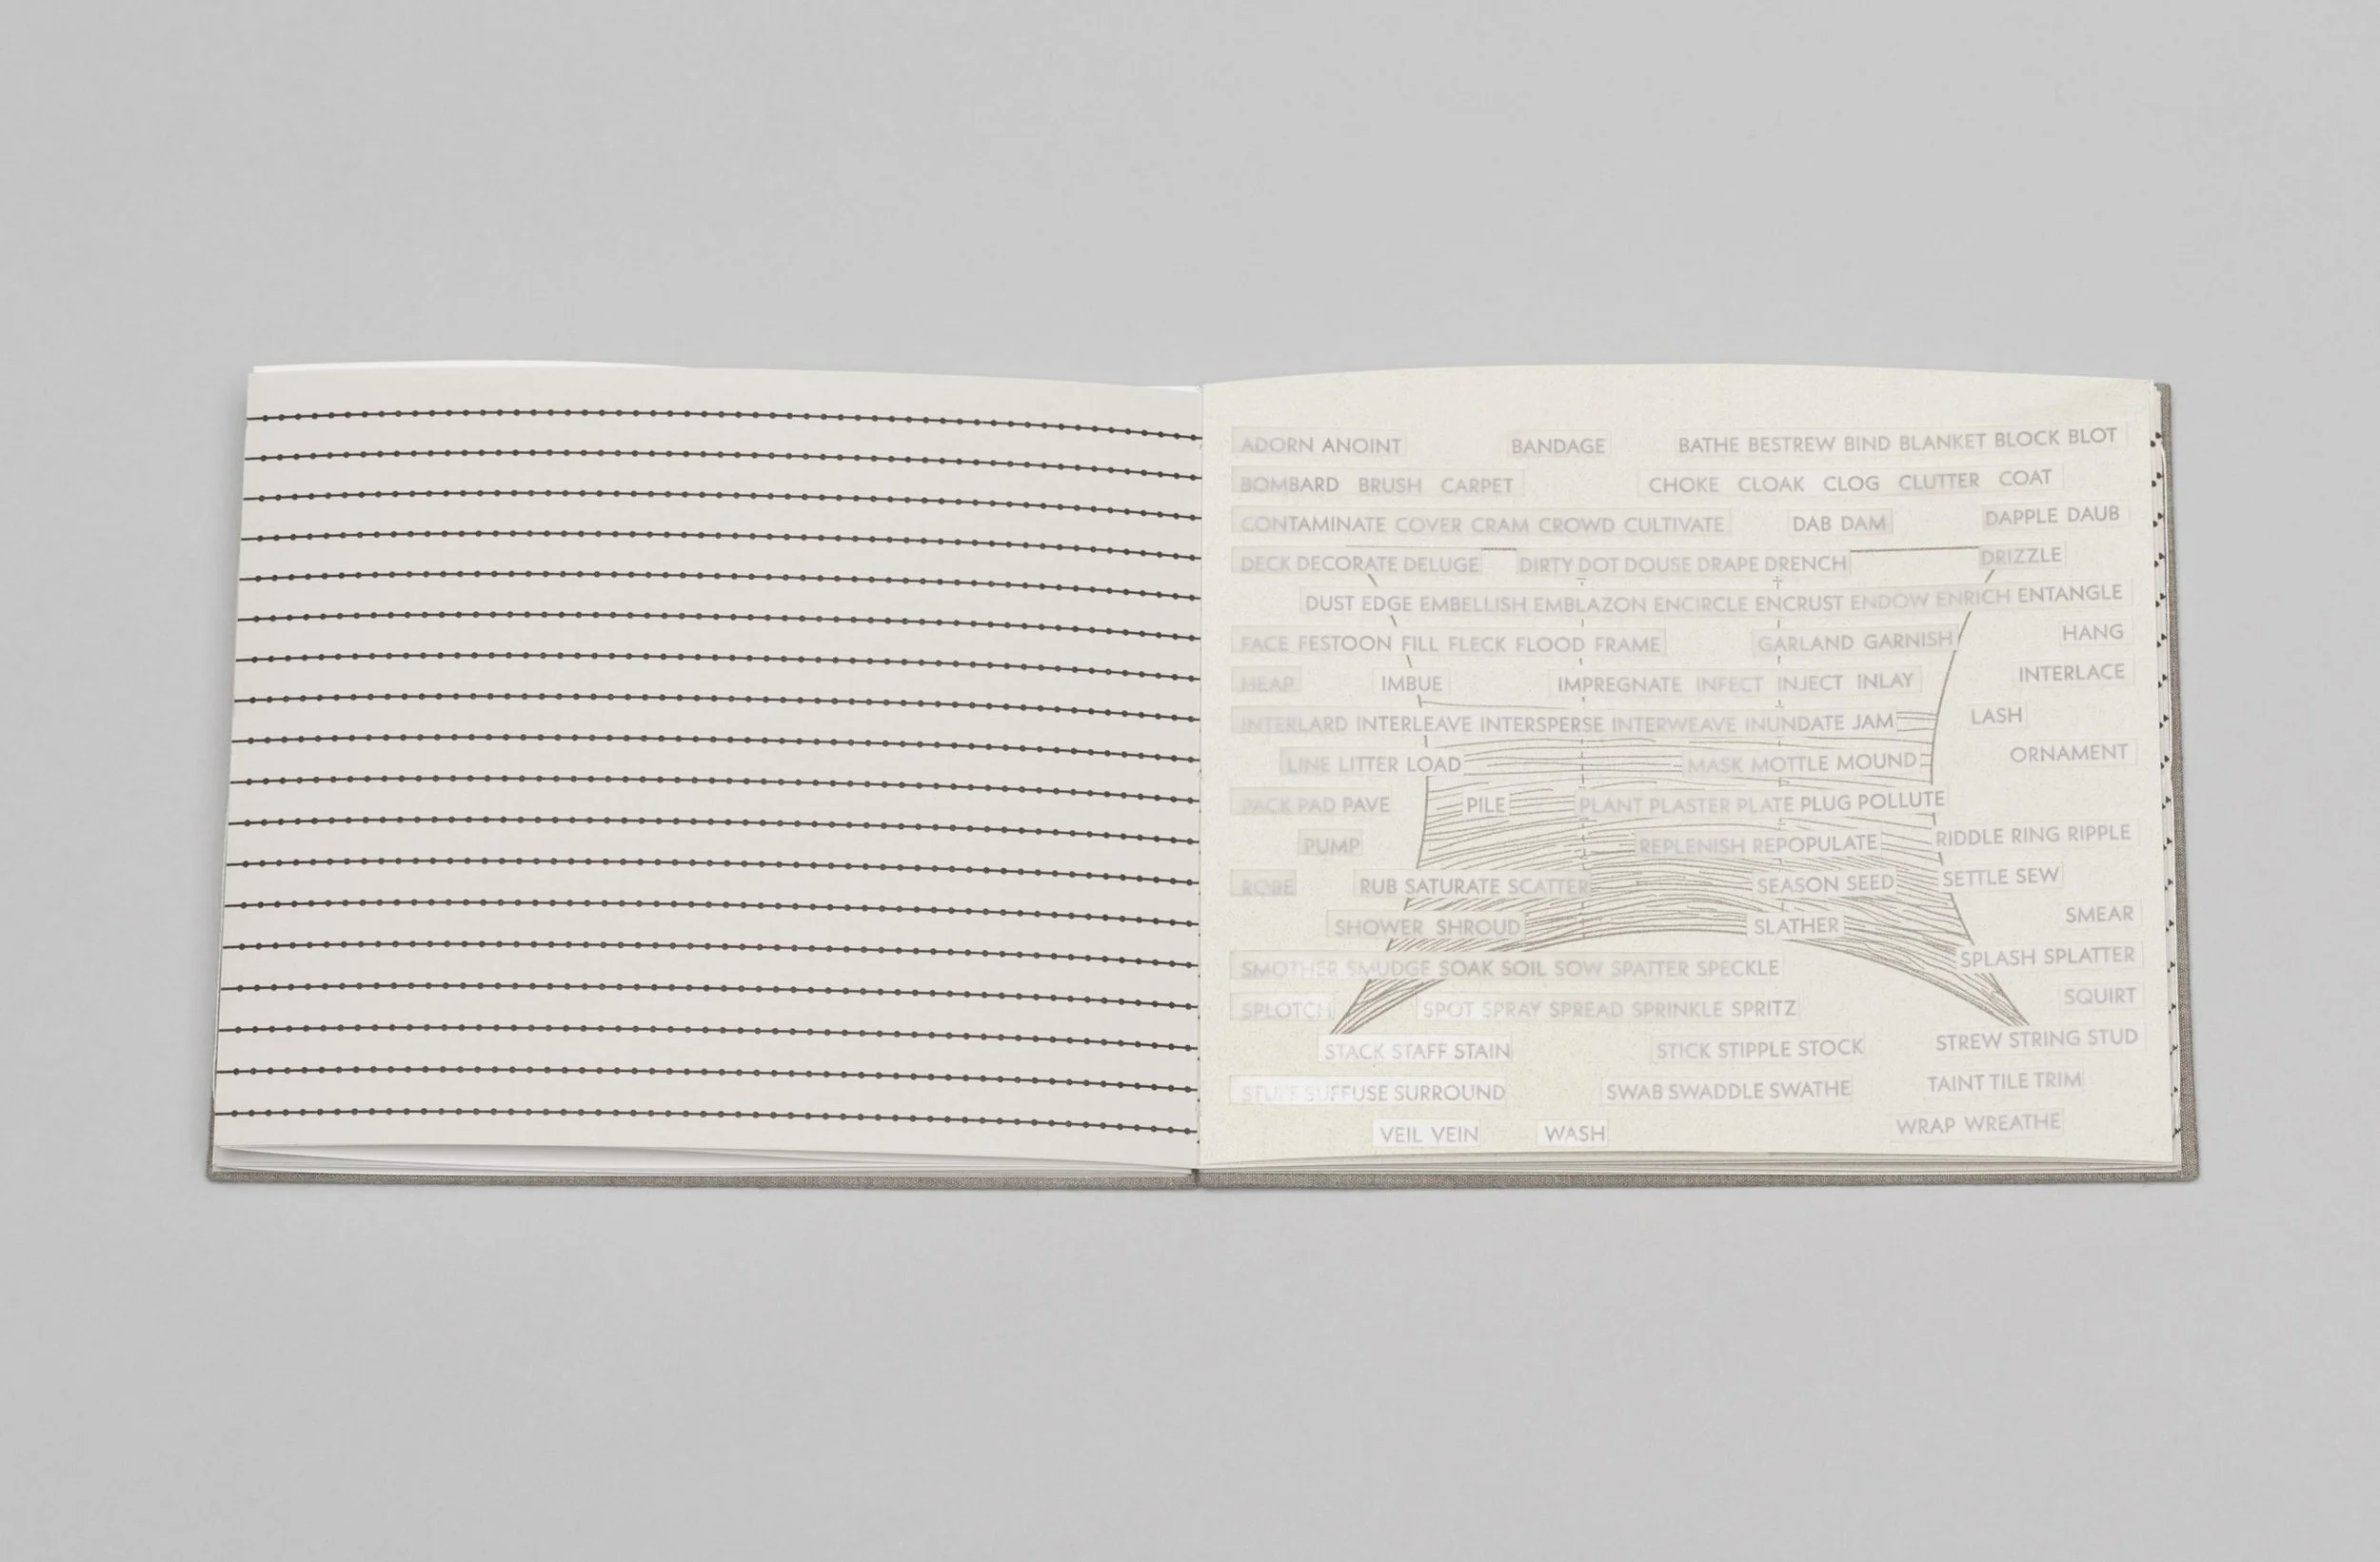 ADORN ANOINT BANDAGE BATHE BESTREW BIND BLANKET BLOCK BLOT
BOMBARD BRUSH CARPET CHOKE CLOAK CLOG CLUTTER COAT
CONTAMINATE COVER CRAM CROWD CULTIVATE DAB DAM DAPPLE DAUB
DECK DECORATE DELUGE DIRTY DOT DOUSE DRAPE DRENCH DRIZZLE
DUST EDGE EMBELLISH EMBLAZON ENCIRCLE ENCRUST ENDOW ENRICH ENTANGLE
FACE FESTOON FILL FLECK FLOOD FRAME GARLAND GARNISH HANG
HEAP IMBUE IMPREGNATE INFECT INJECT INLAY INTERLACE
INTERLARD INTERLEAVE INTERSPERSE INTERWEAVE INUNDATE JAM LASH
LINE LITTER LOAD MASK MOTTLE MOUND ORNAMENT
PACK PAD PAVE PILE PLANT PLASTER PLATE PLUG POLLUTE
PUMP REPLENISH REPOPULATE RIDDLE RING RIPPLE
ROBE RUB SATURATE SCATTER SEASON SEED SETTLE SEW
SHOWER SHROUD SLATHER SMEAR
SMOTHER SMUDGE SOAK SOIL SOW SPATTER SPECKLE SPLASH SPLATTER
SPLOTCH SPOT SPRAY SPREAD SPRINKLE SPRITZ SQUIRT
STACK STAFF STAIN STICK STIPPLE STOCK STREW STRING STUD
STUFF SUFFUSE SURROUND SWAB SWADDLE SWATHE TAINT TILE TRIM
VEIL VEIN WASH WRAP WREATHE